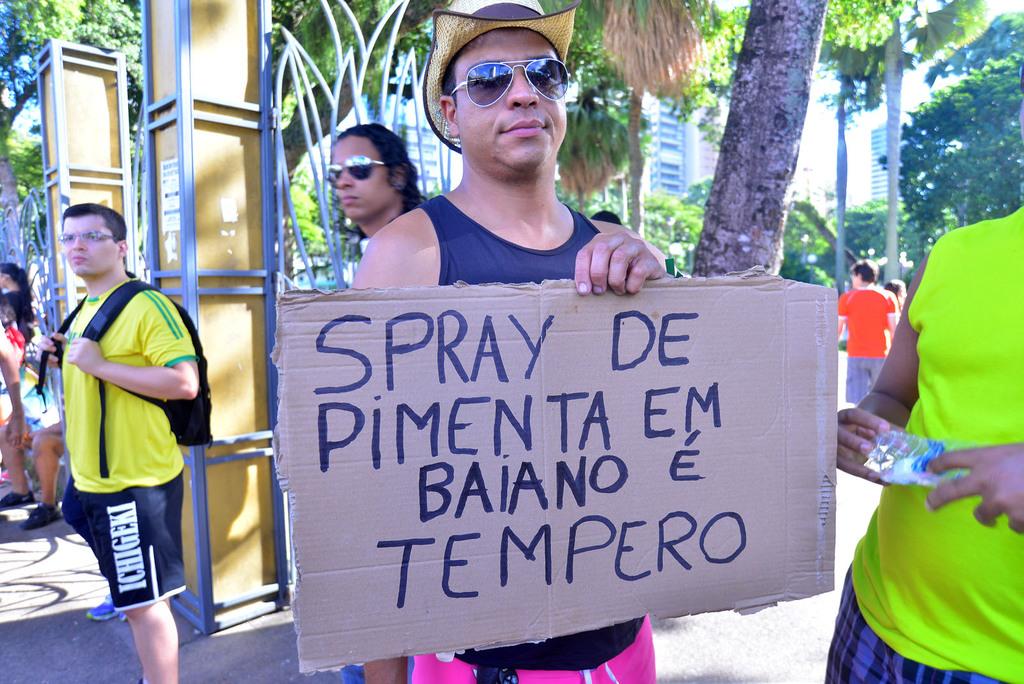 SPRAY DE
PIMENTA EM
BAIANO É
TEMPERO
ICHIGEKI